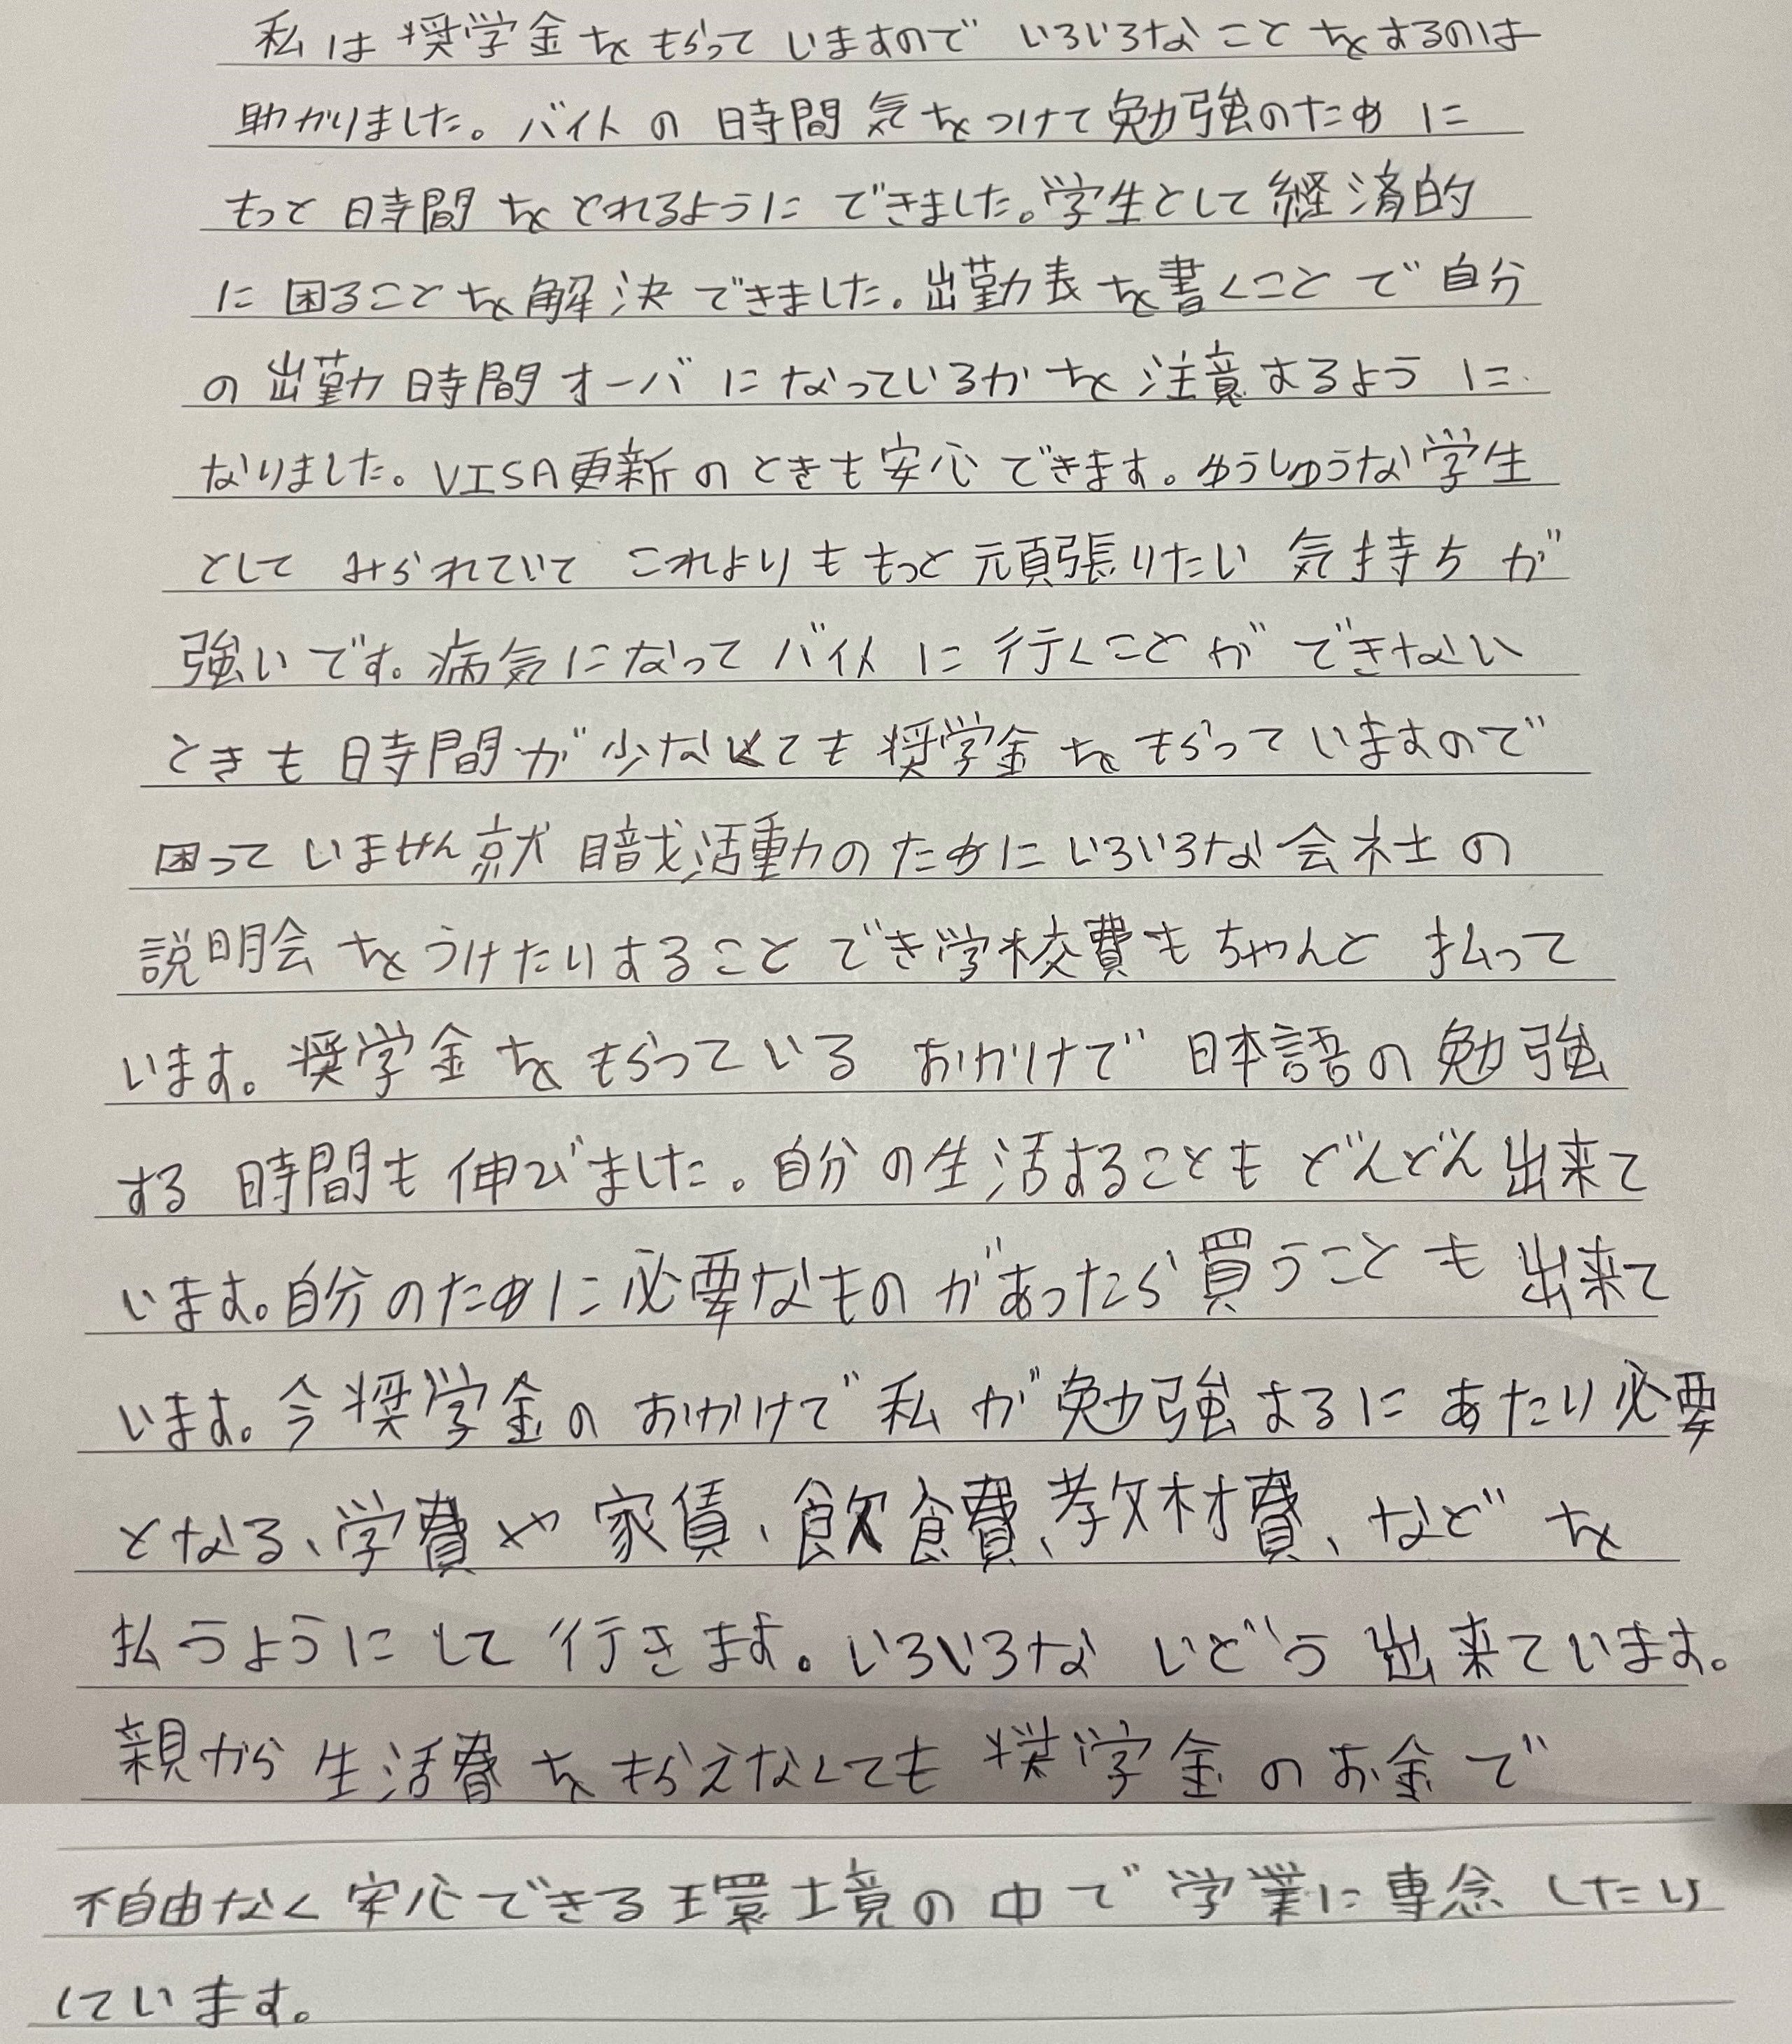 私は奨学金をもらっていますのでいろいろなことをするのは
助かりました。バイトの時間気をつけて勉強のために
もっと時間をとれるようにできました。学生として経済的
に困ることを解決できました。出勤表を書くことで自分
の出勤時間オーバになっているかを注意するように
なりました。VISA更新のときも安心できます。ゆうしゅうな学生
としてみられていてこれよりももっと頑張りたい気持ちが
強いです。病気になってバイトに行くことができない
ときも時間が少なくても奨学金をもらっていますので
困っていません就職活動のためにいろいろな会社の
説明会をうけたりすることでき学校費もちゃんと払って
います。奨学金をもらっているおかけで日本語の勉強
する時間も伸びました。自分の生活することもどんどん出来て
います。自分のために必要なものがあったら買うことも出来て
います。今奨学金のおかけで私が勉強するにあたり必要
となる、学費や家賃、飲食費、教材費、などを
払うようにして行きます。いろいろないどう出来ています。
親から生活費をもらえなくても奨学金のお金で
不自由なく安心できる環境の中で学業に専念したり
しています。